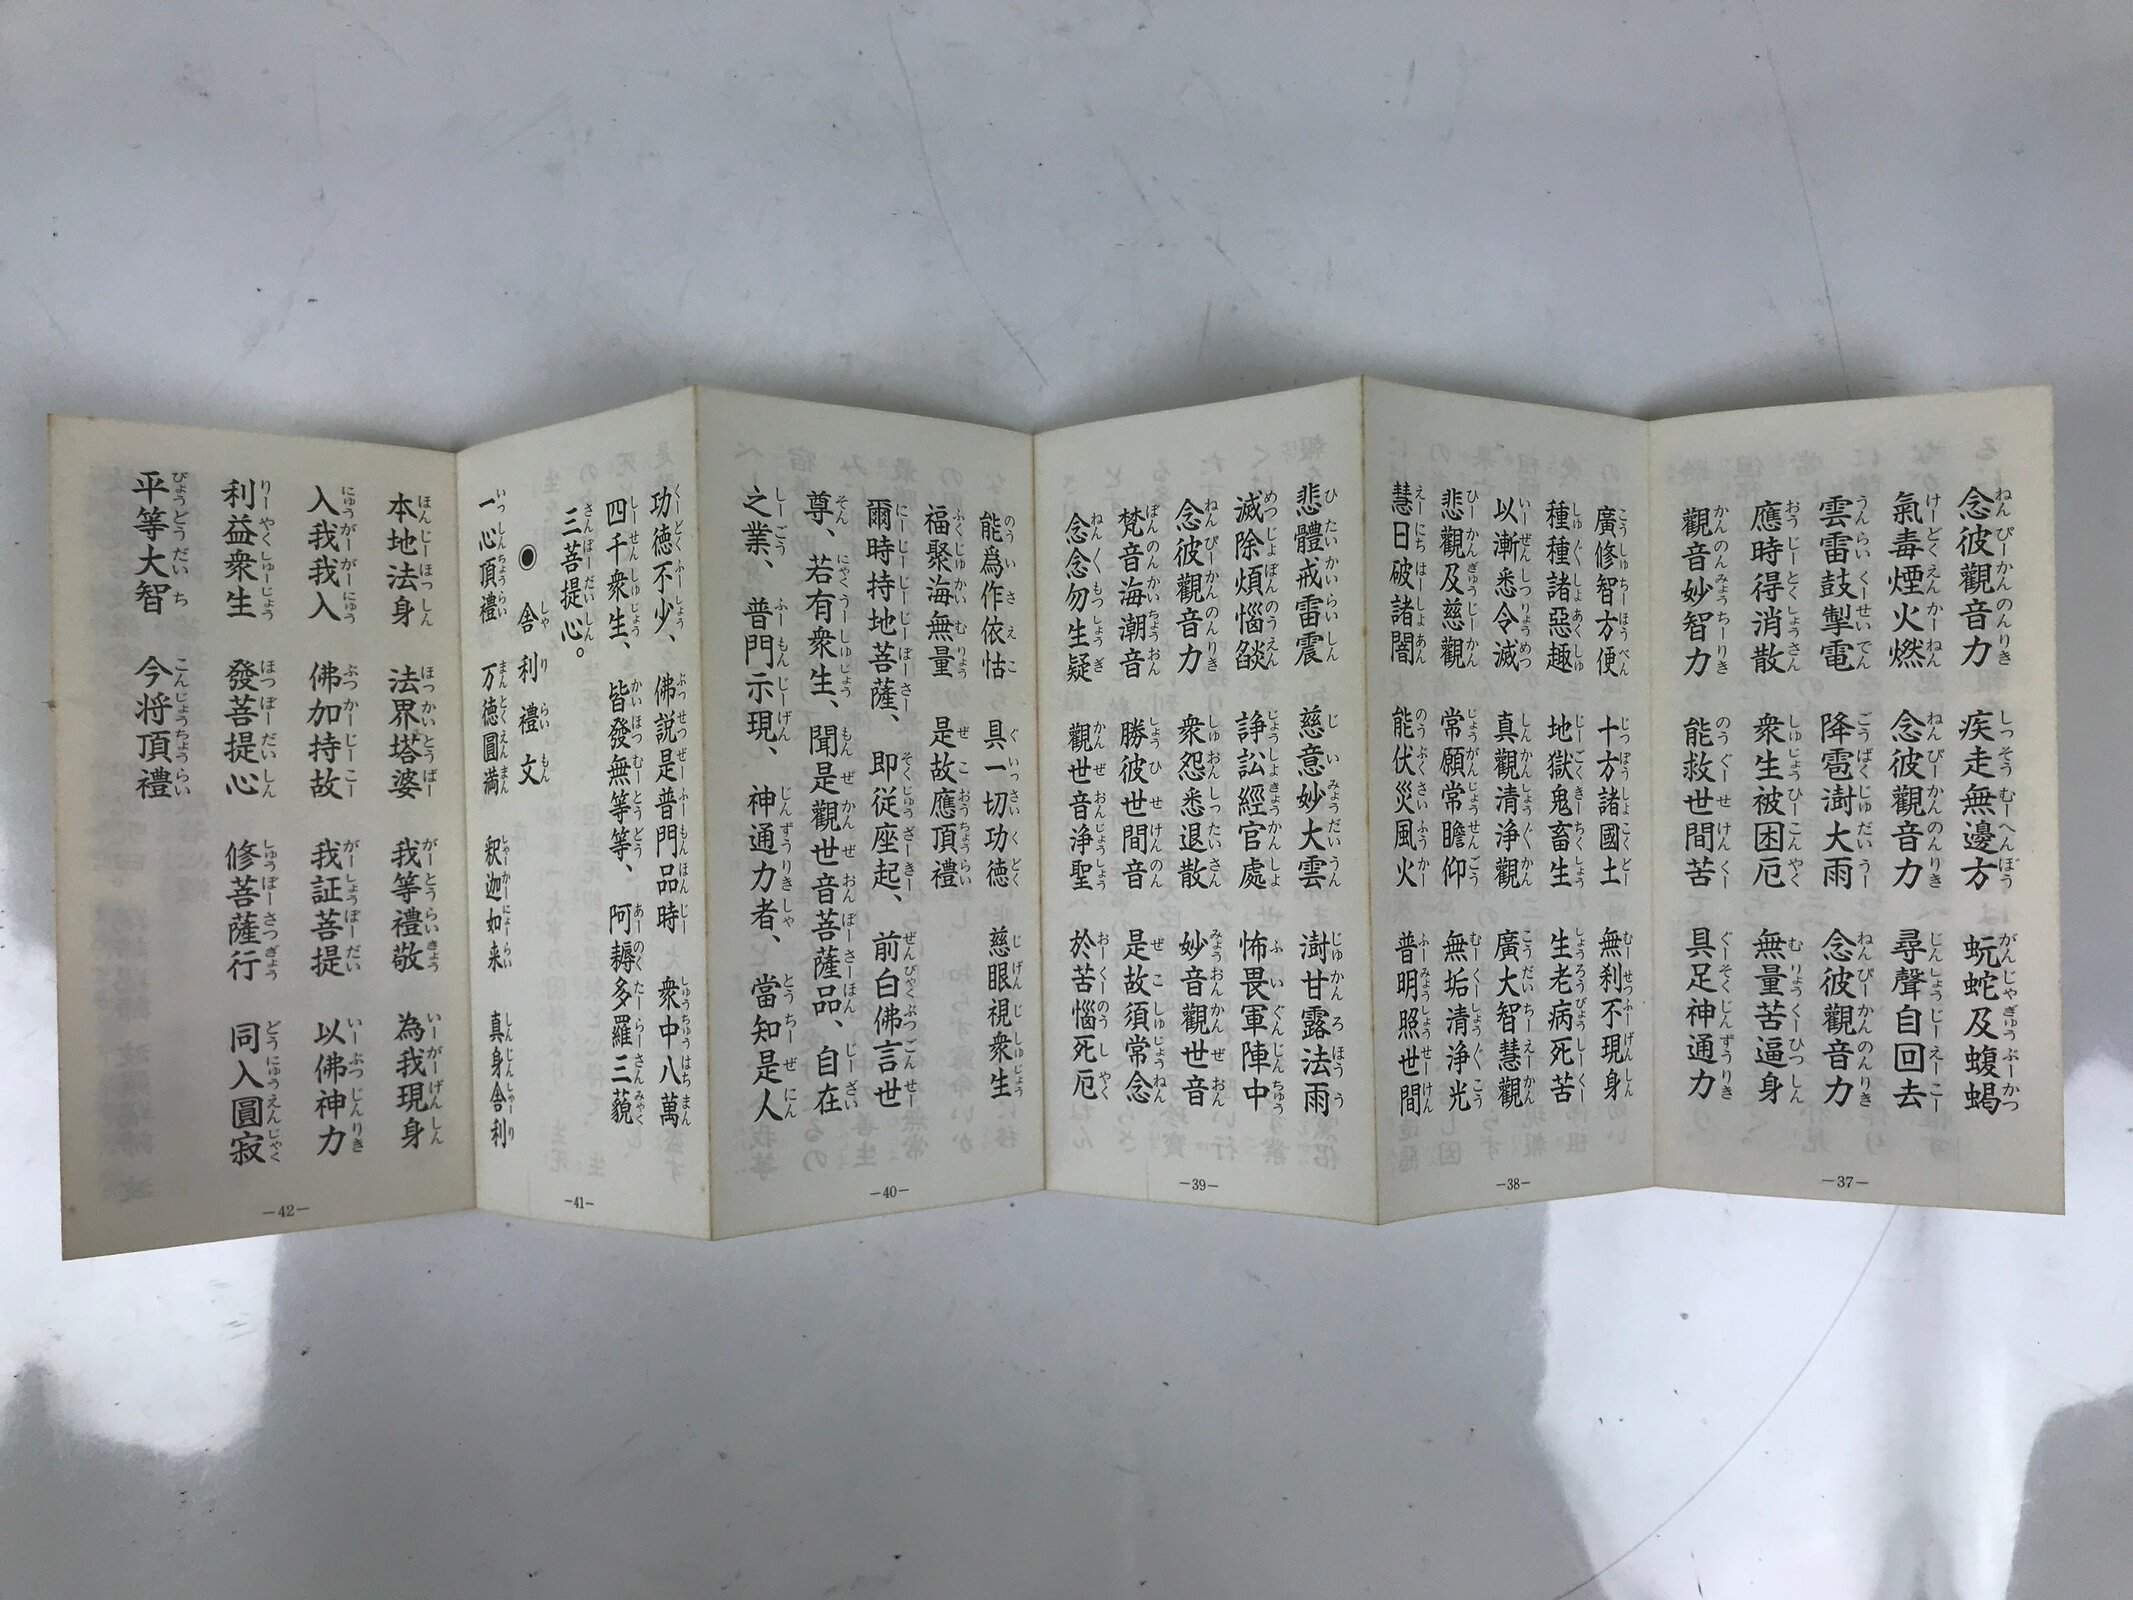 念彼觀音力 疾走無邊方 蚖蛇及蝮蝎
氣毒煙火燃 念彼觀音力 尋聲自回去
雲雷鼓掣電 降雹澍大雨 念彼觀音力
應時得消散 衆生被困厄 無量苦逼身
觀音妙智力 能救世間苦 具足神通力
－37－
廣修智方便 十方諸國土 無刹不現身
種種諸惡趣 地獄鬼畜生 生老病死苦
以漸悉令滅 真觀清浄觀 廣大智慧觀
悲觀及慈觀 常願常瞻仰 無垢清浄光
慧日破諸闇 能伏災風火 普明照世間
－38－
悲體戒雷震 慈意妙大雲 澍甘露法雨
滅除煩惱燄 諍訟經官處 怖畏軍陣中
念彼觀音力 衆怨悉退散 妙音觀世音
梵音海潮音 勝彼世間音 是故須常念
念念勿生疑 觀世音浄聖 於苦惱死厄
－39－
能爲作依怙 具一切功徳 慈眼視衆生
福聚海無量 是故應頂禮
爾時持地菩薩、即従座起、前白佛言世
尊、若有衆生、聞是觀世音菩薩品、自在
之業、普門示現、神通力者、當知是人
－40－
功徳不少、佛説是普門品時 衆中八萬
四千衆生、皆發無等等、阿耨多羅三藐
三菩提心。
◉ 舎利禮文
一心頂禮 万徳圓満 釈迦如来 真身舎利
－41－
本地法身 法界塔婆 我等禮敬 為我現身
入我我入 佛加持故 我証菩提 以佛神力
利益衆生 發菩提心 修菩薩行 同入圓寂
平等大智 今将頂禮
－42－